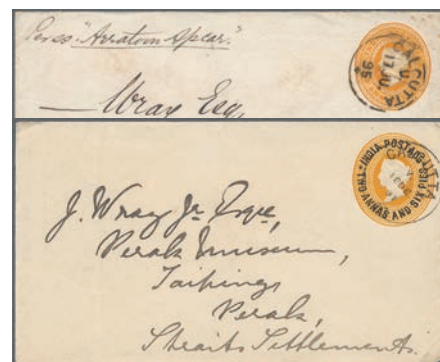 Per ss "Arratoon Apcar"
Wray Esq,
CALCUTTA
17 JU.
95
INDIA POSTAGE
TWO ANNAS AND SIX PIES
J. Wray Jr Esqre,
Perak Museum,
Taiping,
Perak,
Straits Settlements.